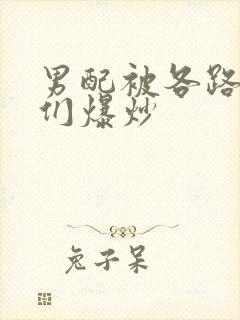 男配被各路
们爆炒
兔子呆